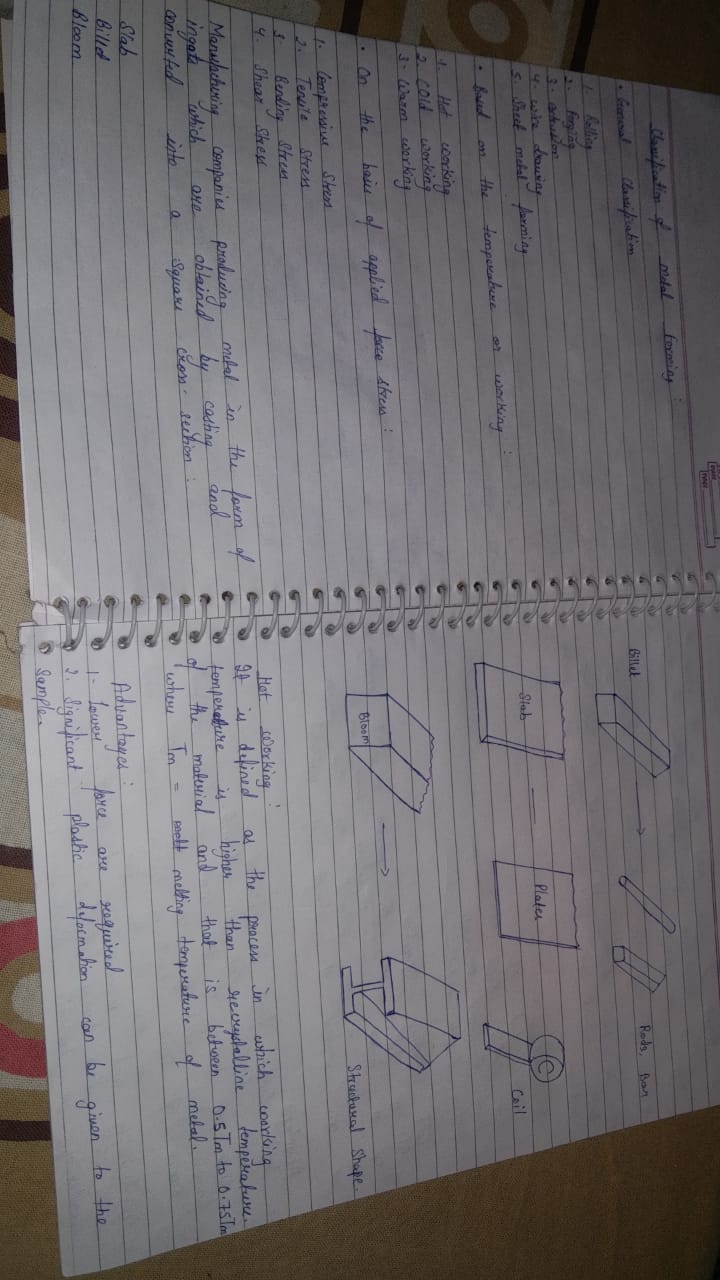 Classification of metal forming:
• General Classification
1. Rolling
2. Forging
3. extraction
4. wire drawing
5. Sheet metal forming
• Based on the temperature or working:
1. Hot working
2. Cold working
3. Warm working
• On the basis of applied force stress:
1. Compressive Stress
2. Tensile Stress
3. Bending Stress
4. Shear Stress
Manufacturing companies producing metal in the form of
ingots which are obtained by casting and
converted into a square cross-section:
Slab
Billet
Bloom
Billet
Rods, Bar
Slab
Plates
Coil
Bloom
Structural Shape.
Hot Working:
It is defined as the process in which working
temperature is higher than recrystalline temperature
of the material and that is between 0.5Tm to 0.75Tm
where Tm = melting temperature of metal.
Advantages:
1. Lower force are required
2. Significant plastic deformation can be given to the
Sample.